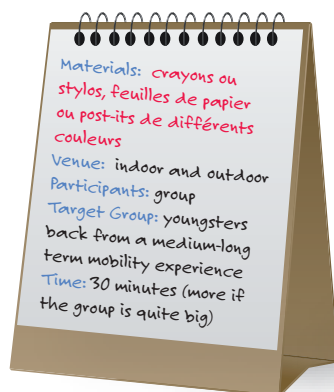 Materials: crayons ou
stylos, feuilles de papier
ou post-its de différents
couleurs
Venue: indoor and outdoor
Participants: group
Target Group: youngsters
back from a medium-long
term mobility experience
Time: 30 minutes (more if
the group is quite big)